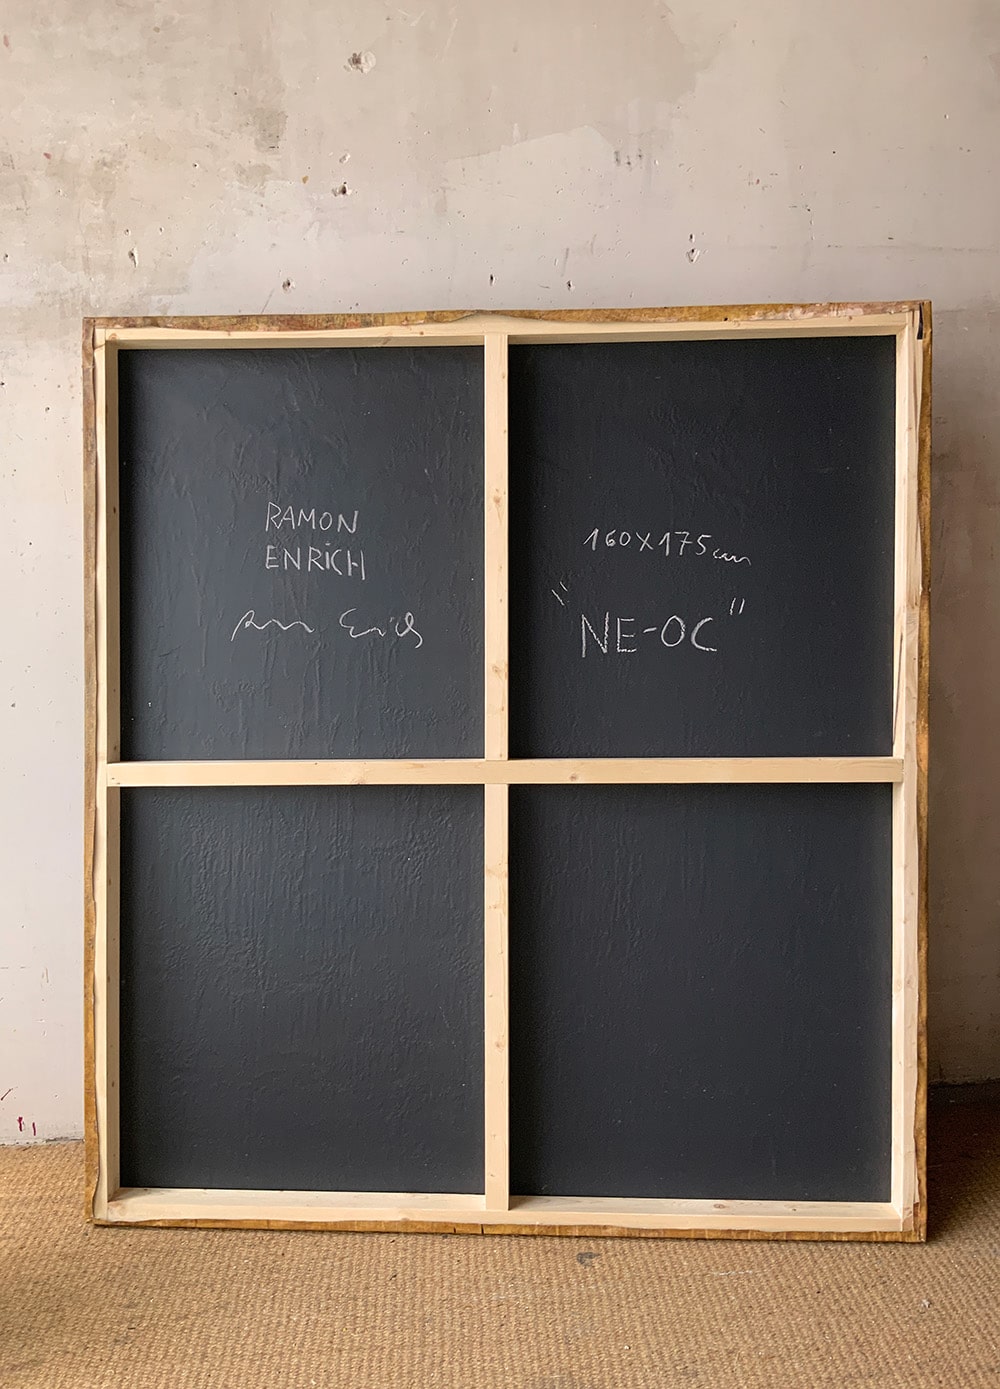 RAMON
ENRICH
160X175cm
"NE-OC"